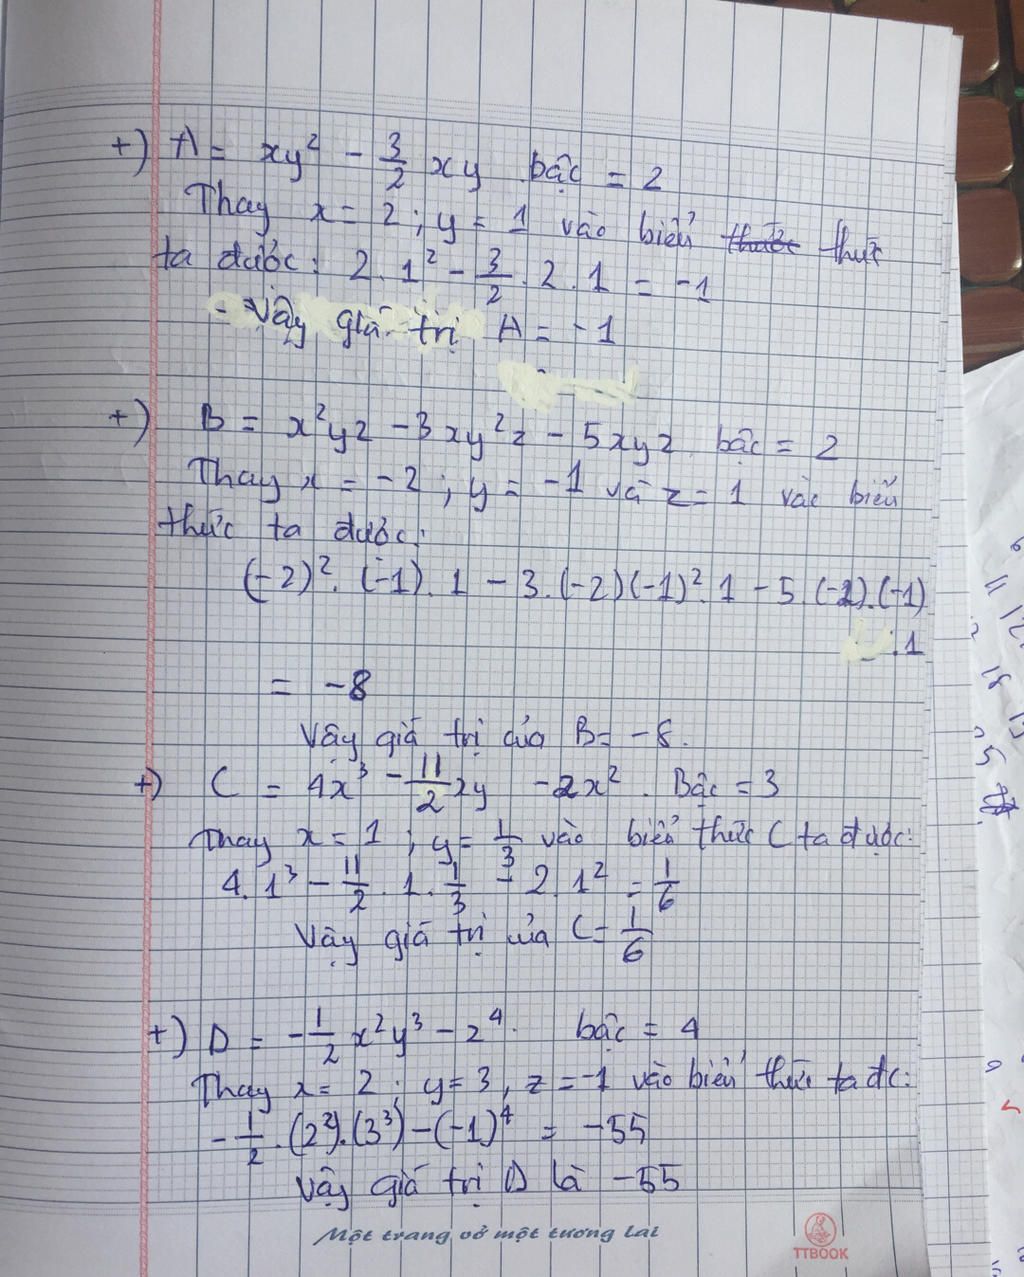 +) A = xy² - 3/2 xy . bậc = 2
Thay x = 2 ; y = 1 vào biểu thức
ta được : 2 . 1² - 3/2 . 2 . 1 = -1
- Vậy giá trị A = -1
+) B = x²yz - 3xy²z - 5xyz bậc = 2
Thay x = -2 ; y = -1 và z = 1 vào biểu
thức ta được :
(-2)² . (-1) . 1 - 3 . (-2)(-1)² . 1 - 5 . (-2) . (-1)
. 1
= -8
Vậy giá trị của B = -8.
+) C = 4x³ - 11/2 xy - 2x² . Bậc = 3
Thay x = 1 ; y = 1/3 vào biểu thức C ta được :
4 . 1³ - 11/2 . 1 . 1/3 - 2 . 1² = 1/6
Vậy giá trị của C = 1/6
+) D = -1/2 x²y³ - z⁴ . bậc = 4
Thay x = 2 ; y = 3 , z = -1 vào biểu thức ta đc :
-1/2 . (2²) . (3³) - (-1)⁴ = -55
Vậy giá trị D là -55
Một trang vở một tương lai
TTBOOK